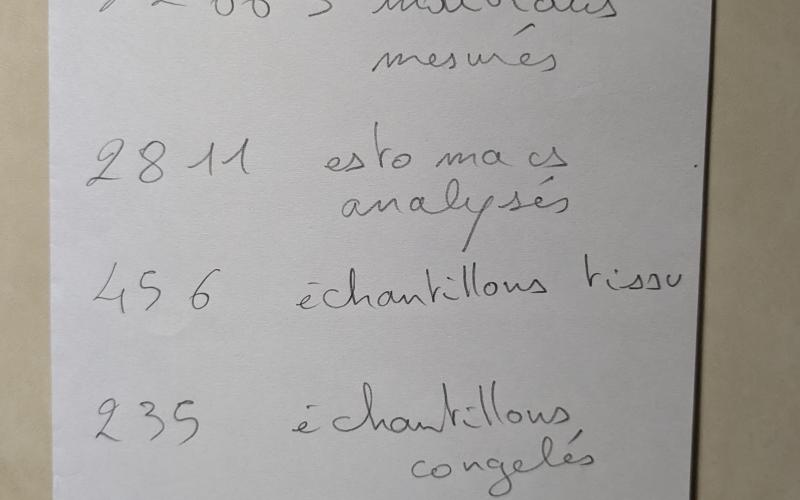 mesurés
2811 estomacs
analysés
456 échantillons tissu
235 échantillons
congelés